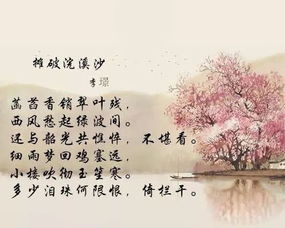 摊破浣溪沙
李璟
菡萏香销翠叶残，
西风愁起绿波间。
还与韶光共憔悴，不堪看。
细雨梦回鸡塞远，
小楼吹彻玉笙寒。
多少泪珠何限恨，倚栏干。